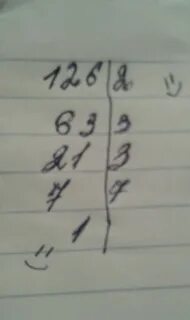 126|2
63|3
21|3
7|7
1|